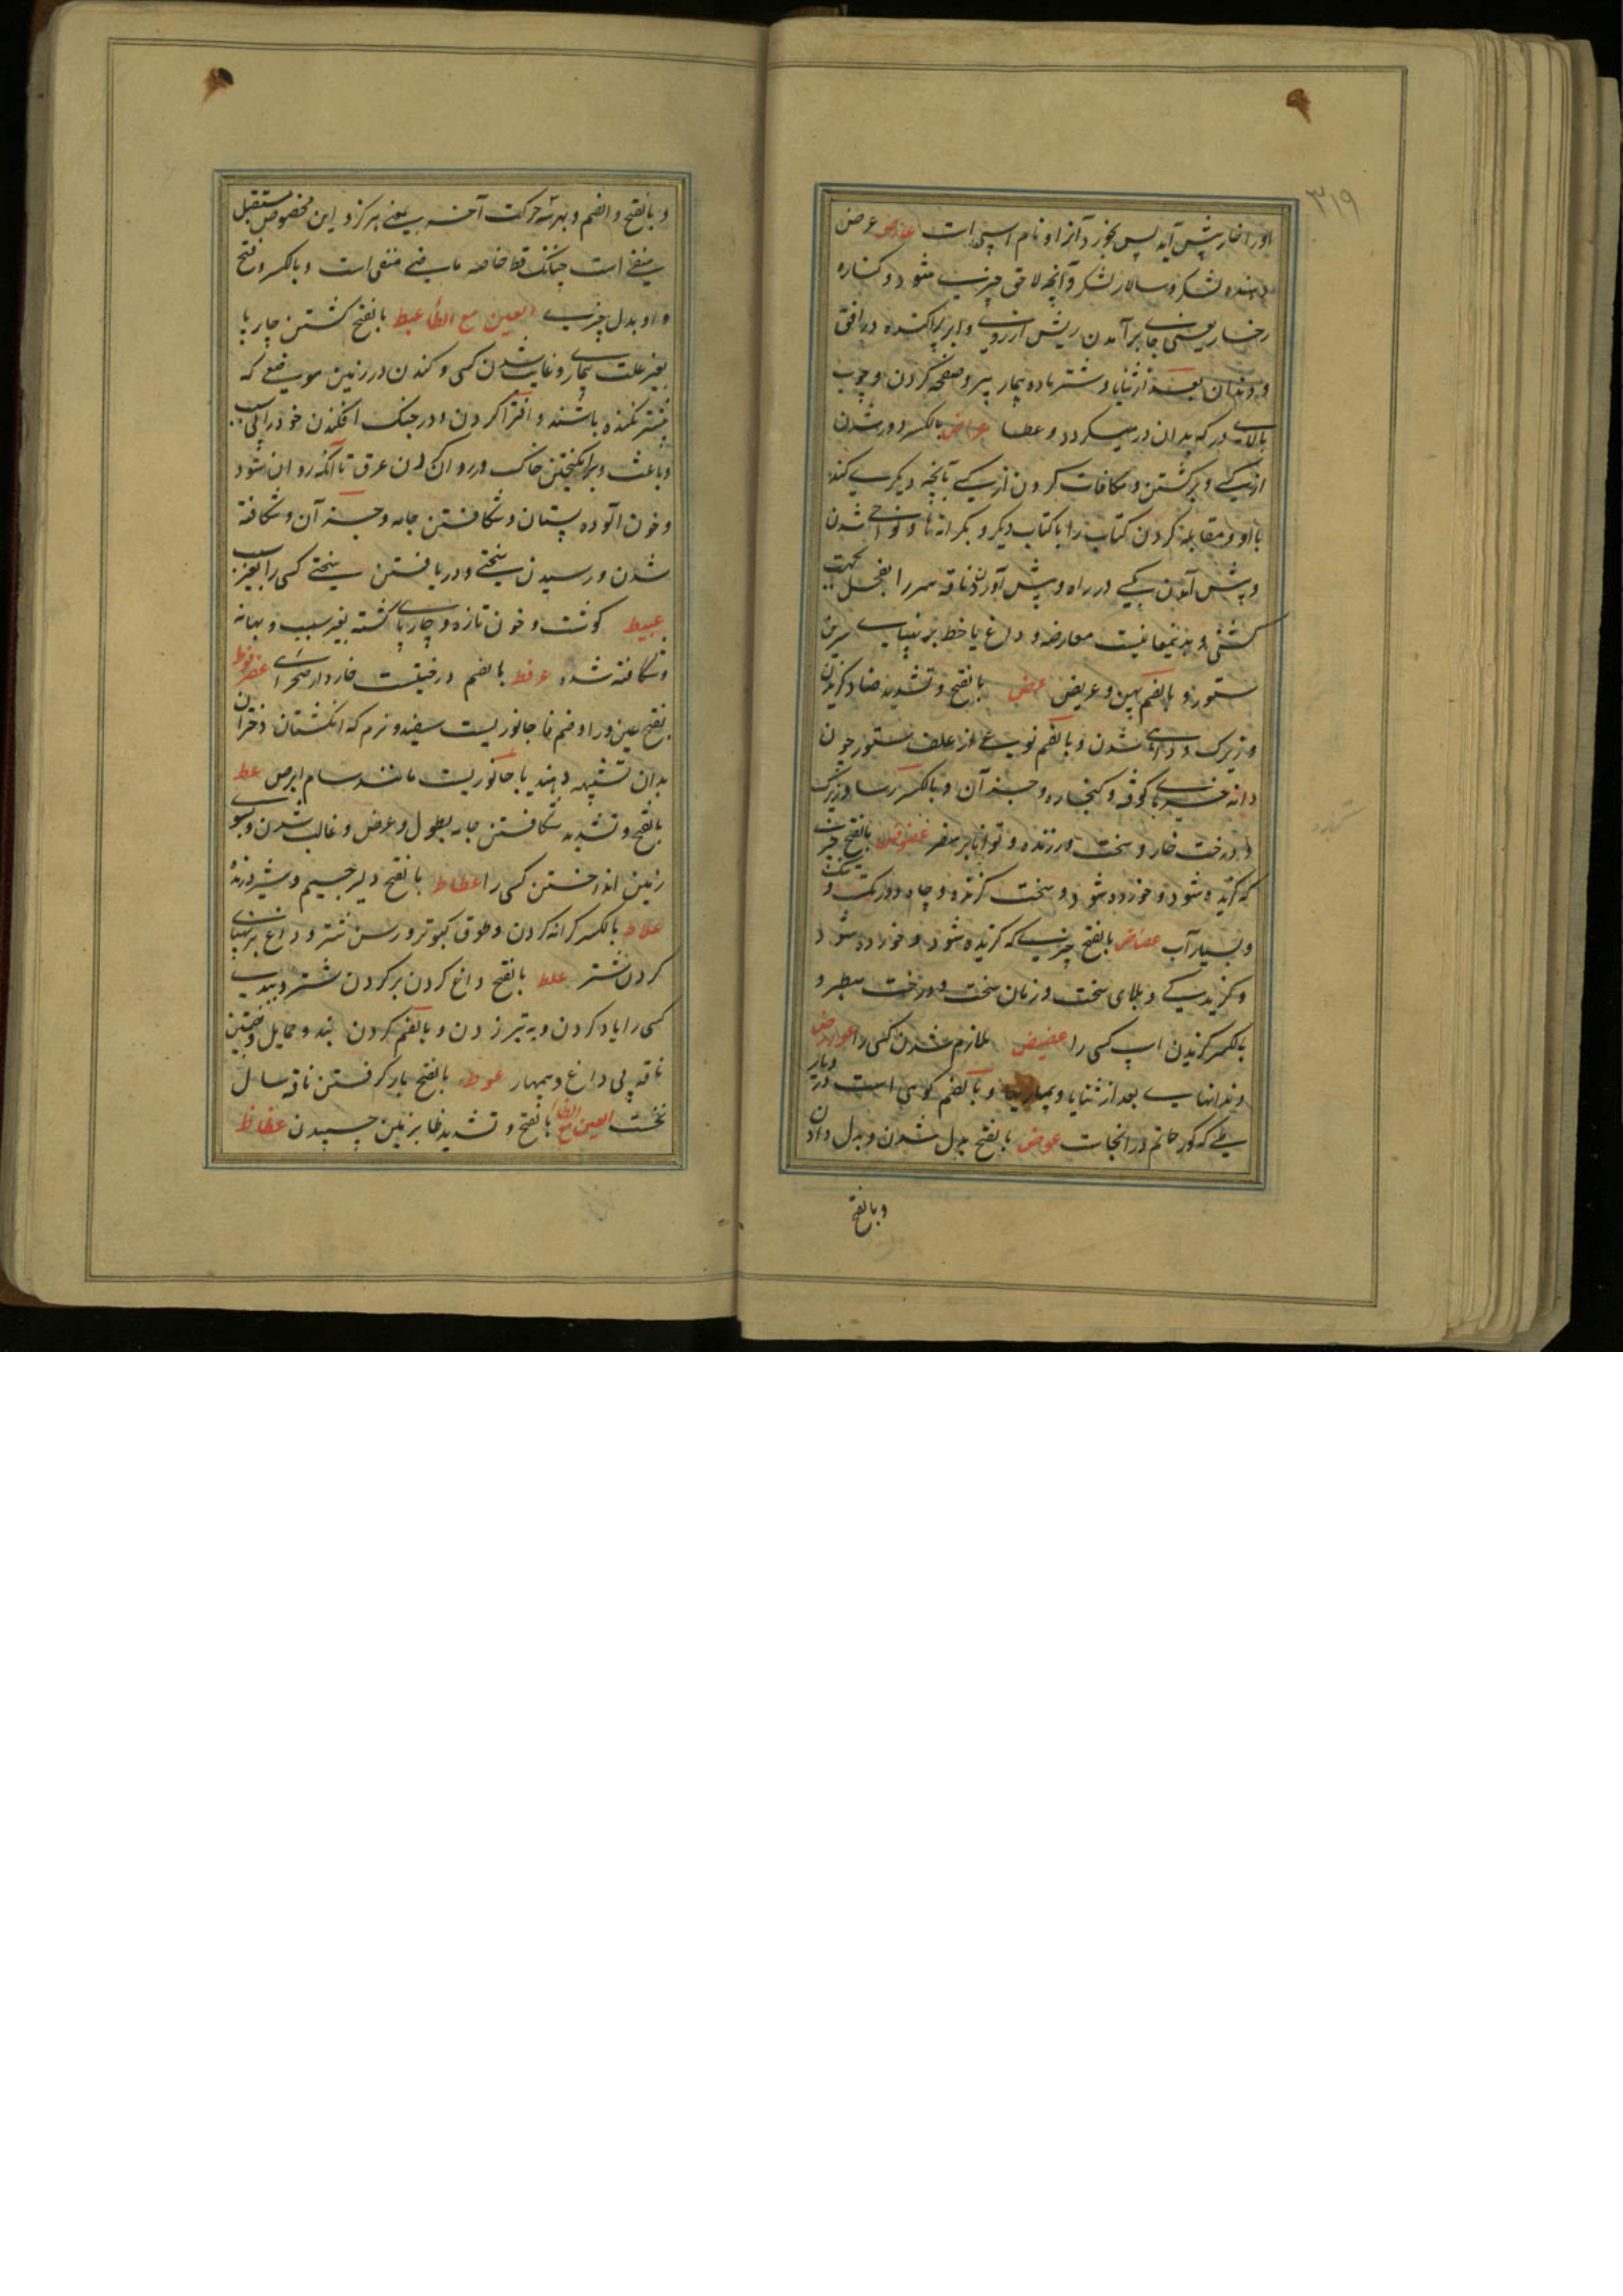 ۳۱۹
اورا خار پیش آید پس بخورد آنرا و نام اسپی است عارض عرض
دهنده لشکر و سالار لشکر و آنچه لاحق چیزی شود و کناره
رخسار یعنی جای برآمدن ریش از روی و ابر پراکنده در افق
و دندان بعد از ثنایا و شتر ماده بیمار پیر و صفحه گردن و چوب
بالای در که بدان در میگردد و عطا عراض بالکسر دور شدن
از یکی و برگشتن و مکافات کردن از یکی بآنچه دیگری کند
با او و مقابله کردن کتاب را با کتاب دیگر و بکرانها و نواحی شدن
و پیش آمدن یکی در راه و پیش آوردن ناقه مر را بفحل بجهت
گشنی و بدینمعانیست معارضه و داغ یا خط بر پهنای سرین
ستور و بالضم پهن و عریض عض بالفتح و تشدید ضاد گزیدن
و زیرک و دای شدن و بالضم نوعی از علف ستور چون
دانه خرمای کوفته و کنجاره و جز آن و بالکسر رسا و زیرک
و درخت خار و سخت ورزنده و توانا بر سفر عضوض بالفتح چیزی
که گزیده شود و خورده شود و سخت گزنده و چاه دورتک و تنک
و بسیار آب عضاض بالفتح چیزی که گزیده شود و خورده شود
و گزیدگی و بلای سخت و زمان سخت و درخت سطبر و
بالکسر گزیدن اسپ کسی را عضیض ملازم شدن کسی را عوارض
دندانهای بعد از ثنایا و بیماریها و بالضم کوهی است در دیار
طی که گور حاتم در انجاست عوض بالفتح بدل شدن و بدل دادن
و بالفتح
و بالفتح والضم و بهر سه حرکت آخر یعنی هرگز و این مخصوص مستقبل
منفی است چنانکه قط خاصه ماضی منفی است و بالکسر و فتح
واو بدل چیزی العین مع الطاء عبط بالفتح کشتن چارپا
بغیر علت بیماری و غایب شدن کسی و کندن در زمین موضعی که
پیشتر نکنده باشند و افترا کردن و در جنک افکندن خود را بی سبب
و باعث و برانگیختن خاک و روان کردن عرق تا آنکه روان شود
و خون آلوده پستان و شکافتن جامه و جز آن و شکافته
شدن و رسیدن سختی و دریافتن سختی کسی را بغیر سبب
عبیط گوشت و خون تازه و چارپای کشته بغیر سبب و بهانه
و شکافته شده عرفط بالضم درختیست خاردار صحرای عضرفوط
بفتح عین و را و ضم فا جانوریست سفید و نرم که انکشتان دختران
بدان تشبیه دهند یا جانوریست مانند سام ابرص عط
بالفتح و تشدید شکافتن جامه بطول و عرض و غالب شدن و بسوی
زمین انداختن کسی را عطاط بالفتح دلیر جسیم و شیر درنده
علاط بالکسر کرانه گردن و طوق کبوتر و رسن شتر و داغ بر پهنای
گردن شتر علط بالفتح داغ کردن بر گردن شتر و ببدی
کسی را یاد کردن و به تیر زدن و بالضم گردن بند و حمایل و بضمتین
ناقه بی داغ و بیمهار عوط بالفتح بار گرفتن ناقه سال
نخست العین مع الظا بالفتح و تشدید ظا بر زمین چسپیدن عظاظ